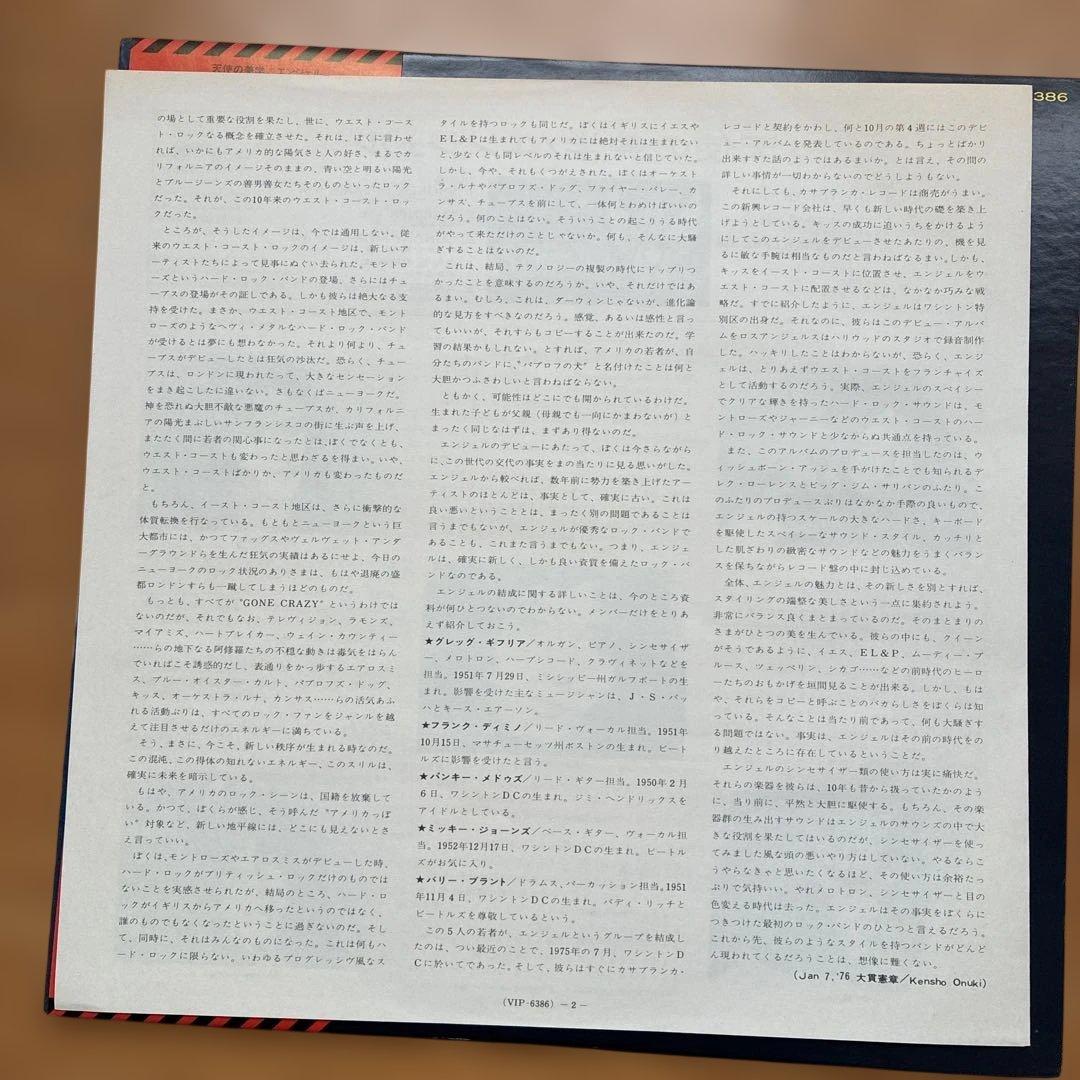 天使の美学 エンジェル
386
の場として重要な役割を果たし、世に、ウエスト・コース
ト・ロックなる概念を確立させた。それは、ぼくに言わせ
れば、いかにもアメリカ的な陽気さと人の好さ、まるでカ
リフォルニアのイメージそのままの、青い空と明るい陽光
とブルージーンズの善男善女たちそのものといったロック
だった。それが、この10年来のウエスト・コースト・ロッ
クだった。
ところが、そうしたイメージは、今では通用しない。従
来のウエスト・コースト・ロックのイメージは、新しいア
ーティストたちによって見事にぬぐい去られた。モントロ
ーズというハード・ロック・バンドの登場、さらにはチュ
ーブスの登場がその証しである。しかも彼らは絶大なる支
持を受けた。まさか、ウエスト・コースト地区で、モント
ローズのようなヘヴィ・メタルなハード・ロック・バンド
が受けるとは夢にも想わなかった。それより何より、チュ
ーブスがデビューしたとは狂気の沙汰だ。恐らく、チュー
ブスは、ロンドンに現われたって、大きなセンセーション
をまき起こしたに違いない。さもなくばニューヨークだ。
神を恐れぬ大胆不敵な悪魔のチューブスが、カリフォルニ
アの陽光まぶしいサンフランシスコの街に生ぶ声を上げ、
またたく間に若者の関心事になったとは、ぼくでなくとも、
ウエスト・コーストも変わったと思わざるを得まい。いや、
ウエスト・コーストばかりか、アメリカも変わったものだ
と。
もちろん、イースト・コースト地区は、さらに衝撃的な
体質転換を行なっている。もともとニューヨークという巨
大都市には、かつてファッグスやヴェルヴェット・アンダ
ーグラウンドらを生んだ狂気の実績はあるにせよ、今日の
ニューヨークのロック状況のありさまは、もはや退廃の盛
都ロンドンすらも一蹴してしまうほどのものだ。
もっとも、すべてが“GONE CRAZY”というわけでは
ないのだが、それでもなお、テレヴィジョン、ラモンズ、
マイアミズ、ハートブレイカー、ウェイン・カウンティー
……らの地下なる阿修羅たちの不穏な動きは毒気をはらん
でいればこそ誘惑的だし、表通りをかっ歩するエアロスミ
ス、ブルー・オイスター・カルト、パブロフズ・ドッグ、
キッス、オーケストラ・ルナ、カンサス……らの活気あふ
れる活動ぶりは、すべてのロック・ファンをジャンルを越
えて注目させるだけのエネルギーに満ちている。
そう、まさに、今こそ、新しい秩序が生まれる時なのだ。
この混沌、この得体の知れないエネルギー、このスリルは、
確実に未来を暗示している。
もはや、アメリカのロック・シーンは、国籍を放棄して
いる。かつて、ぼくらが感じ、そう呼んだ“アメリカっぽ
い”対象など、新しい地平線には、どこにも見えないとさ
え言っていい。
ぼくは、モントローズやエアロスミスがデビューした時、
ハード・ロックがブリティッシュ・ロックだけのものでは
ないことを実感させられたが、結局のところ、ハード・ロ
ックがイギリスからアメリカへ移ったというのではなく、
誰のものでもなくなったということに過ぎないのだ。そし
て、同時に、それはみんなのものになった。これは何もハ
ード・ロックに限らない。いわゆるプログレッシヴ風なス
タイルを持つロックも同じだ。ぼくはイギリスにイエスや
EL&Pは生まれてもアメリカには絶対それは生まれない
と、少なくとも同レベルのそれは生まれないと信じていた。
しかし、今や、それもくつがえされた。ぼくはオーケスト
ラ・ルナやパブロフズ・ドッグ、ファイヤー・バレー、カ
ンサズ、チューブスを前にして、一体何とわめけばいいの
だろう。何のことはない。そういうことの起こりうる時代
がやって来ただけのことじゃないか。何も、そんなに大騒
ぎすることはないのだ。
これは、結局、テクノロジーの複製の時代にドップリつ
かったことを意味するのだろうか。いや、それだけではあ
るまい。むしろ、これは、ダーウィンじゃないが、進化論
的な見方をすべきなのだろう。感覚、あるいは感性と言っ
てもいいが、それすらもコピーすることが出来たのだ。学
習の結果かもしれない。とすれば、アメリカの若者が、自
分たちのバンドに、“パブロフの犬”と名付けたことは何と
大胆かつふさわしいと言わねばならない。
ともかく、可能性はどこにでも開かられているわけだ。
生まれた子どもが父親（母親でも一向にかまわないが）と
まったく同じなはずは、まずあり得ないのだ。
エンジェルのデビューにあたって、ぼくは今さらながら
に、この世代の交代の事実をまの当たりに見る思いがした。
エンジェルから較べれば、数年前に勢力を築き上げたアー
ティストのほとんどは、事実として、確実に古い。これは
良い悪いということとは、まったく別の問題であることは
言うまでもないが、エンジェルが優秀なロック・バンドで
あることも、これまた言うまでもない。つまり、エンジェ
ルは、確実に新しく、しかも良い資質を備えたロック・バ
ンドなのである。
エンジェルの結成に関する詳しいことは、今のところ資
料が何ひとつないのでわからない。メンバーだけをとりあ
えず紹介しておこう。
★グレッグ・ギフリア/オルガン、ピアノ、シンセサイザ
ー、メロトロン、ハープシコード、クラヴィネットなどを
担当。1951年7月29日、ミシシッピー州ガルフポートの生
まれ。影響を受けた主なミュージシャンは、J・S・バッ
ハとキース・エアーソン。
★フランク・ディミノ/リード・ヴォーカル担当。1951年
10月15日、マサチューセッツ州ボストンの生まれ。ビート
ルズに影響を受けたと言う。
★パンキー・メドゥズ/リード・ギター担当。1950年2月
6日、ワシントンDCの生まれ。ジミ・ヘンドリックスを
アイドルとしている。
★ミッキー・ジョーンズ/ベース・ギター、ヴォーカル担
当。1952年12月17日、ワシントンDCの生まれ。ビートル
ズがお気に入り。
★バリー・ブラント/ドラムス、パーカッション担当。1951
年11月4日、ワシントンDCの生まれ。バディ・リッチと
ビートルズを尊敬しているという。
この5人の若者が、エンジェルというグループを結成し
たのは、つい最近のことで、1975年の7月、ワシントンD
Cに於いてであった。そして、彼らはすぐにカサブランカ・
レコードと契約をかわし、何と10月の第4週にはこのデビ
ュー・アルバムを発表しているのである。ちょっとばかり
出来すぎた話のようではあるまいか。とは言え、その間の
詳しい事情が一切わからないのでどうしようもない。
それにしても、カサブランカ・レコードは商売がうまい。
この新興レコード会社は、早くも新しい時代の礎を築き上
げようとしている。キッスの成功に追いうちをかけるよう
にしてこのエンジェルをデビューさせたあたりの、機を見
るに敏な手腕は相当なものだと言わねばなるまい。しかも、
キッスをイースト・コーストに位置させ、エンジェルをウ
エスト・コーストに配置させるなどは、なかなか巧みな戦
略だ。すでに紹介したように、エンジェルはワシントン特
別区の出身だ。それなのに、彼らはこのデビュー・アルバ
ムをロスアンジェルスはハリウッドのスタジオで録音制作
した。ハッキリしたことはわからないが、恐らく、エンジ
ェルは、とりあえずウエスト・コーストをフランチャイズ
として活動するのだろう。実際、エンジェルのスペイシー
でクリアな輝きを持ったハード・ロック・サウンドは、モ
ントローズやジャーニーなどのウエスト・コーストのハー
ド・ロック・サウンドと少なからぬ共通点を持っている。
また、このアルバムのプロデュースを担当したのは、ウ
ィッシュボーン・アッシュを手がけたことでも知られるデ
レク・ローレンスとビッグ・ジム・サリバンのふたり。こ
のふたりのプロデュースぶりはなかなか手際の良いもので、
エンジェルの持つスケールの大きなハードさ、キーボード
を駆使したスペイシーなサウンド・スタイル、カッチリと
した肌ざわりの緻密なサウンドなどの魅力をうまくバラン
スを保ちながらレコード盤の中に封じ込めている。
全体、エンジェルの魅力とは、その新しさを別とすれば、
スタイリングの端整な美しさという一点に集約されよう。
非常にバランス良くまとまっているのだ。そのまとまりの
さまがひとつの美を生んでいる。彼らの中にも、クイーン
がそうであるように、イエス、EL&P、ムーディー・ブ
ルース、ツェッペリン、シカゴ……などの前時代のヒーロ
ーたちのおもかげを垣間見ることが出来る。しかし、もは
や、それらをコピーと呼ぶことのバカらしさをぼくらは知
っている。そんなことは当たり前であって、何も大騒ぎす
る問題ではない。事実は、エンジェルはその前の時代をの
り越えたところに存在しているということだ。
エンジェルのシンセサイザー類の使い方は実に痛快だ。
それらの楽器を彼らは、10年も昔から扱っていたかのよう
に、当り前に、平然と大胆に駆使する。もちろん、その楽
器群の生み出すサウンドはエンジェルのサウンズの中で大
きな役割を果たしてはいるのだが、シンセサイザーを使っ
てみました風な頭の悪いやり方はしていない。やるならこ
うやらなきゃと思いたくなるほど、その使い方は余裕たっ
ぷりで気持いい。やれメロトロン、シンセサイザーと目の
色変える時代は去った。エンジェルはその事実をぼくらに
つきつけた最初のロック・バンドのひとつと言えるだろう。
これから先、彼らのようなスタイルを持つバンドがどんど
ん現われてくるだろうことは、想像に難くない。
(Jan 7,'76 大貫憲章/Kensho Onuki)
(VIP-6386) －2－